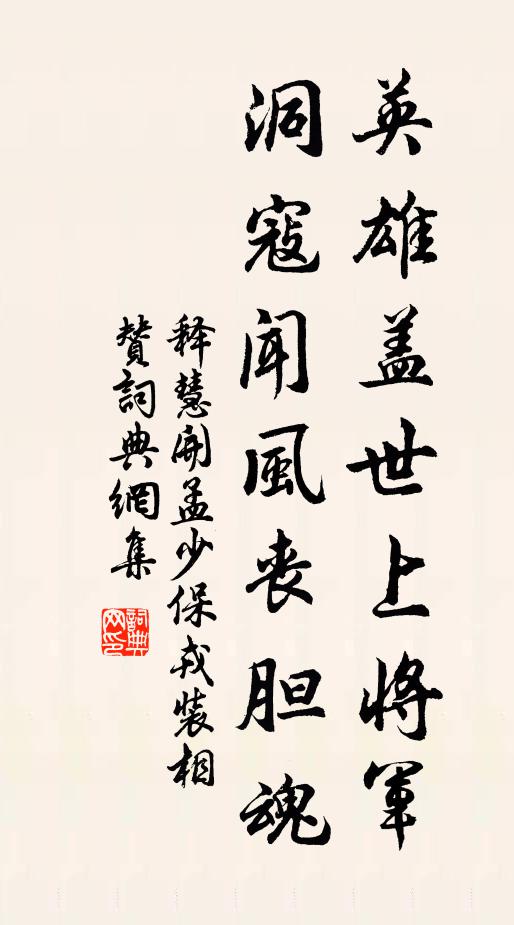 英雄盖世上將軍
洞寇闻風丧胆魂
释慧開孟少保戎裝相
贊詞典網集
詞典
网印